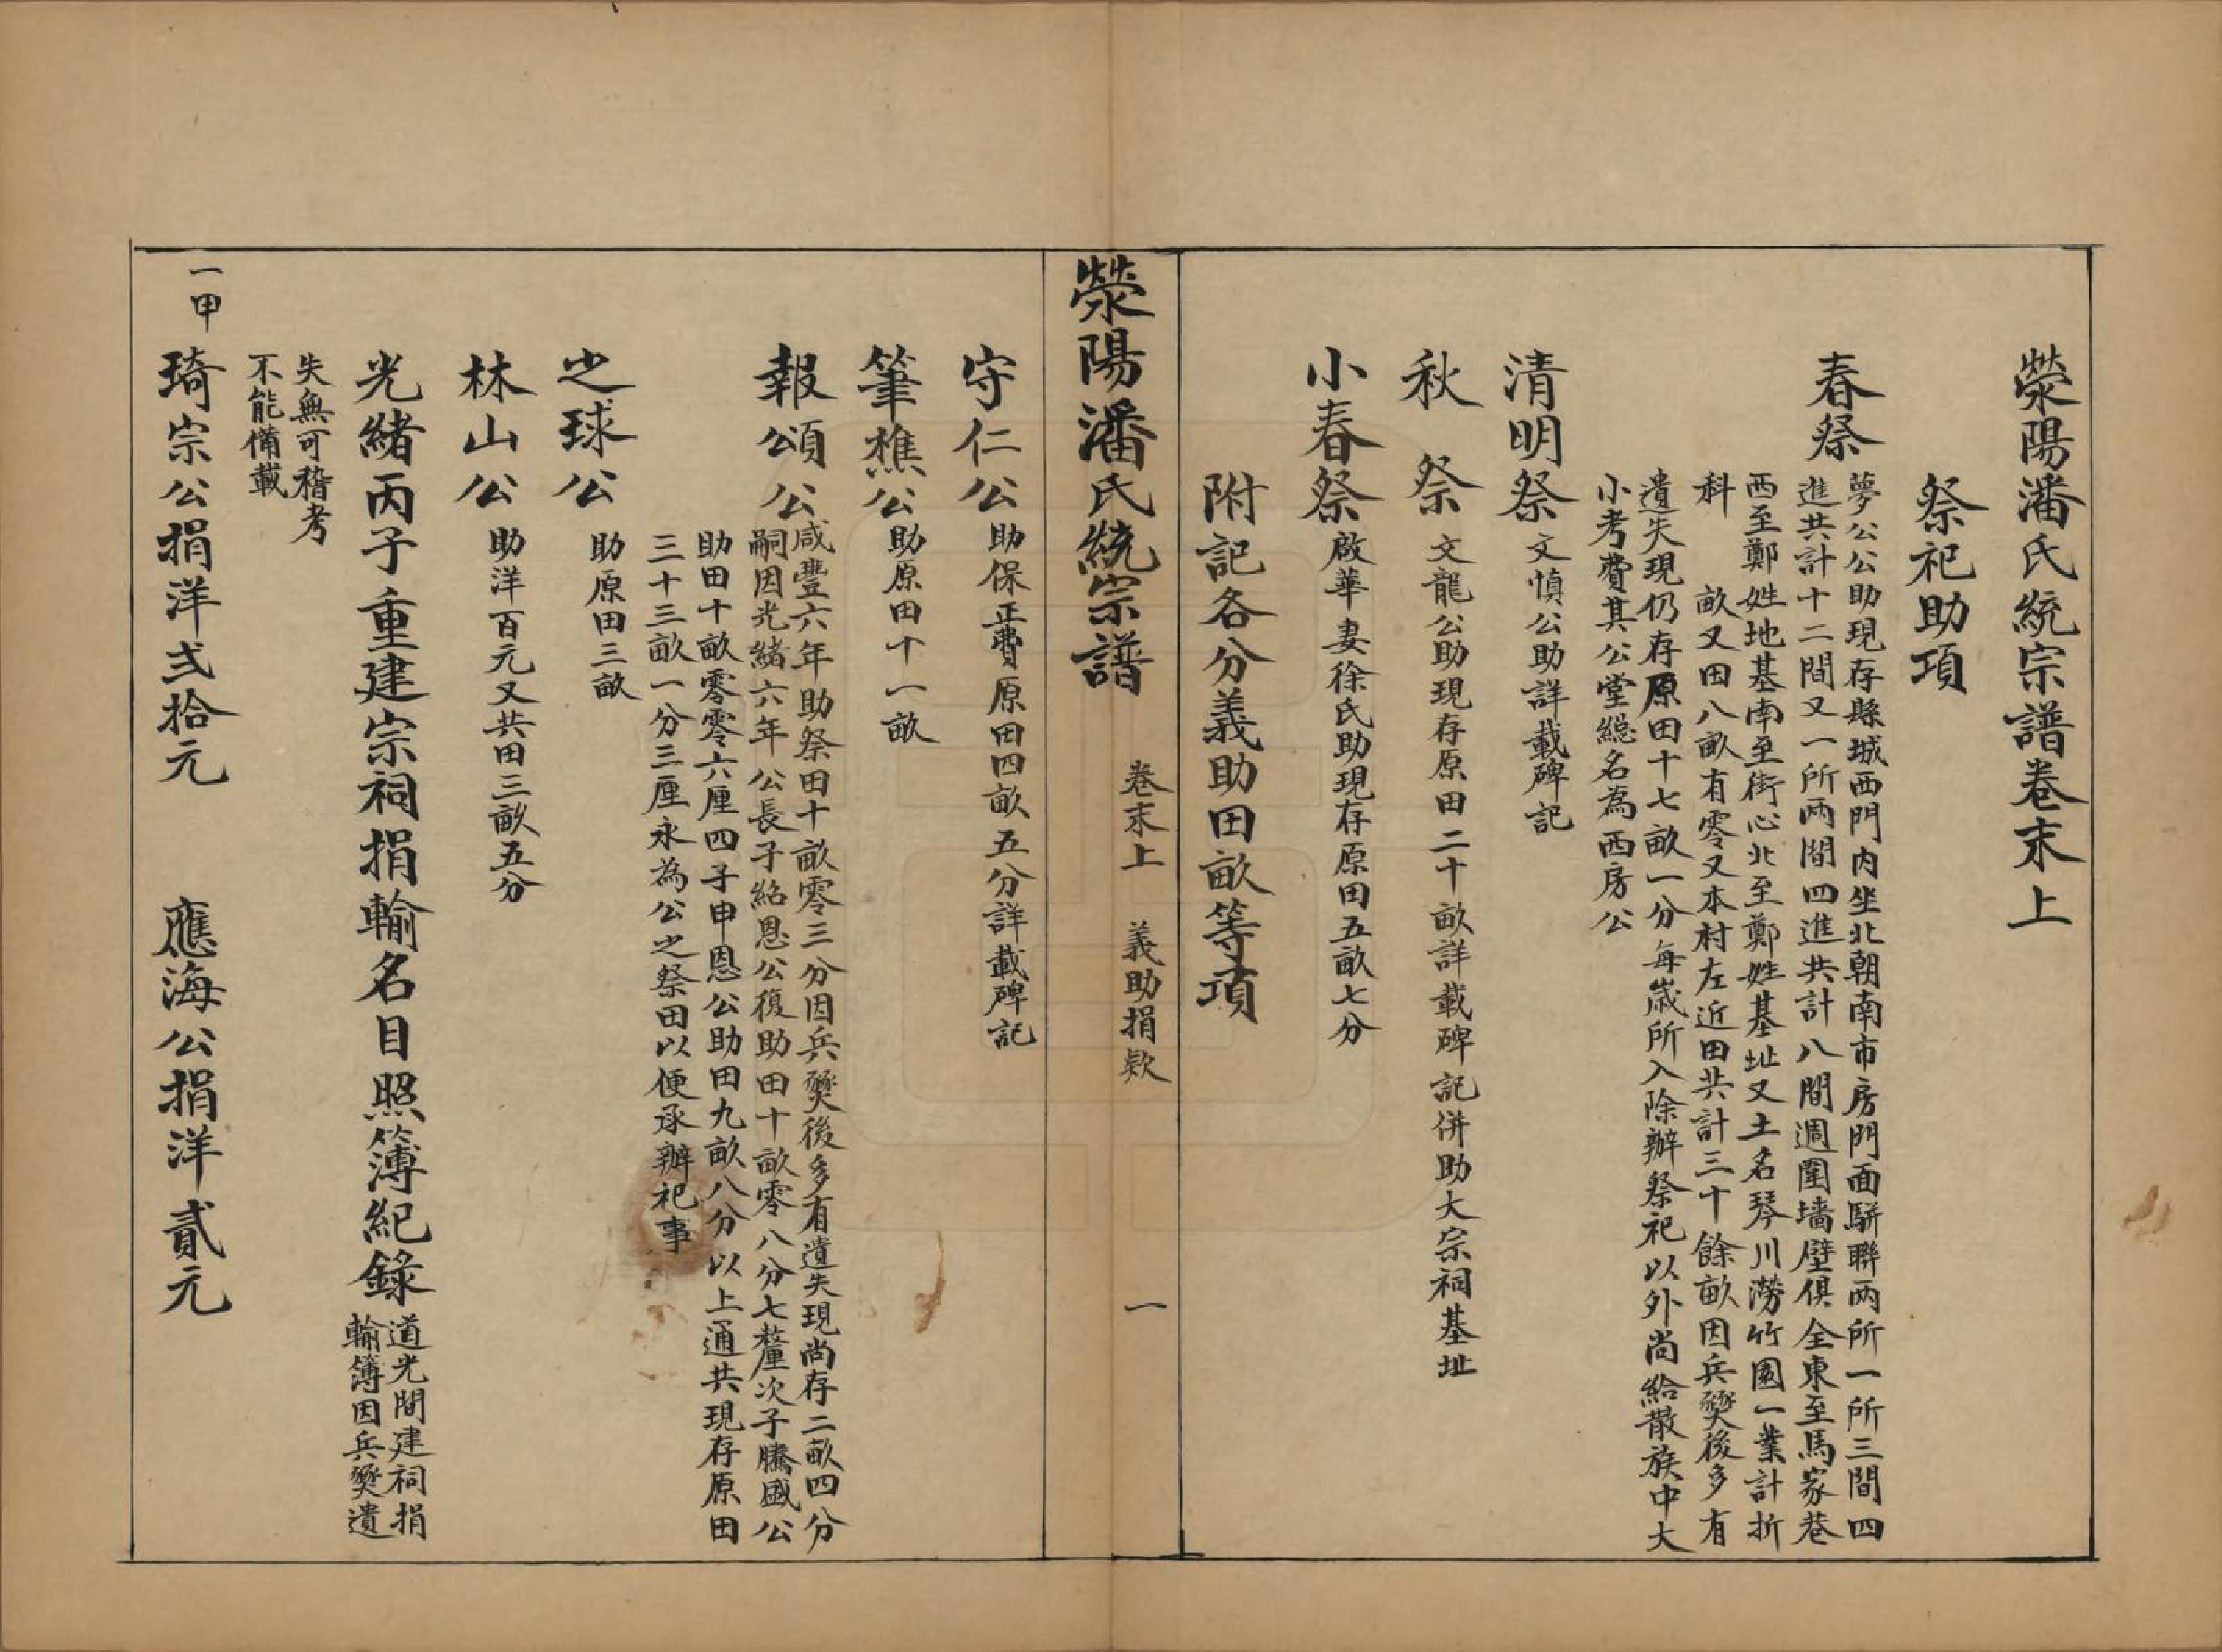 滎陽潘氏統宗譜卷末上
祭祀助項
春祭
夢公公助現存縣城西門內坐北朝南市房門面駢聯兩所一所三間四
進共計十二間又一所兩間四進共計八間週圍墻壁俱全東至馬家巷
西至鄭姓地基南至街心北至鄭姓基址又土名琴川澇竹園一業計折
科　畝又田八畝有零又本村左近田共計三十餘畝因兵燹後多有
遺失現仍存原田十七畝一分每歲所入除辦祭祀以外尚給散族中大
小考費其公堂總名為西房公
清明祭 文慎公助詳載碑記
秋祭 文龍公助現存原田二十畝詳載碑記併助大宗祠基址
小春祭 啟華妻徐氏助現存原田五畝七分
附記各分義助田畝等項
滎陽潘氏統宗譜 卷末上 義助捐欵 一
守仁公 助保正費原田四畝五分詳載碑記
筆樵公 助原田十一畝
報頌公
咸豐六年助祭田十畝零三分因兵燹後多有遺失現尚存二畝四分
嗣因光緒六年公長子紹恩公復助田十畝零八分七釐次子騰國公
助田十畝零零六厘四子申恩公助田九畝八分以上通共現存原田
三十三畝一分三厘永為公之祭田以便承辦祀事
之球公 助原田三畝
林山公 助洋百元又共田三畝五分
光緒丙子重建宗祠捐輸名目照簿紀錄
道光間建祠捐
輸簿因兵燹遺
失無可稽考
不能備載
一甲 琦宗公捐洋弍拾元 應海公捐洋貳元